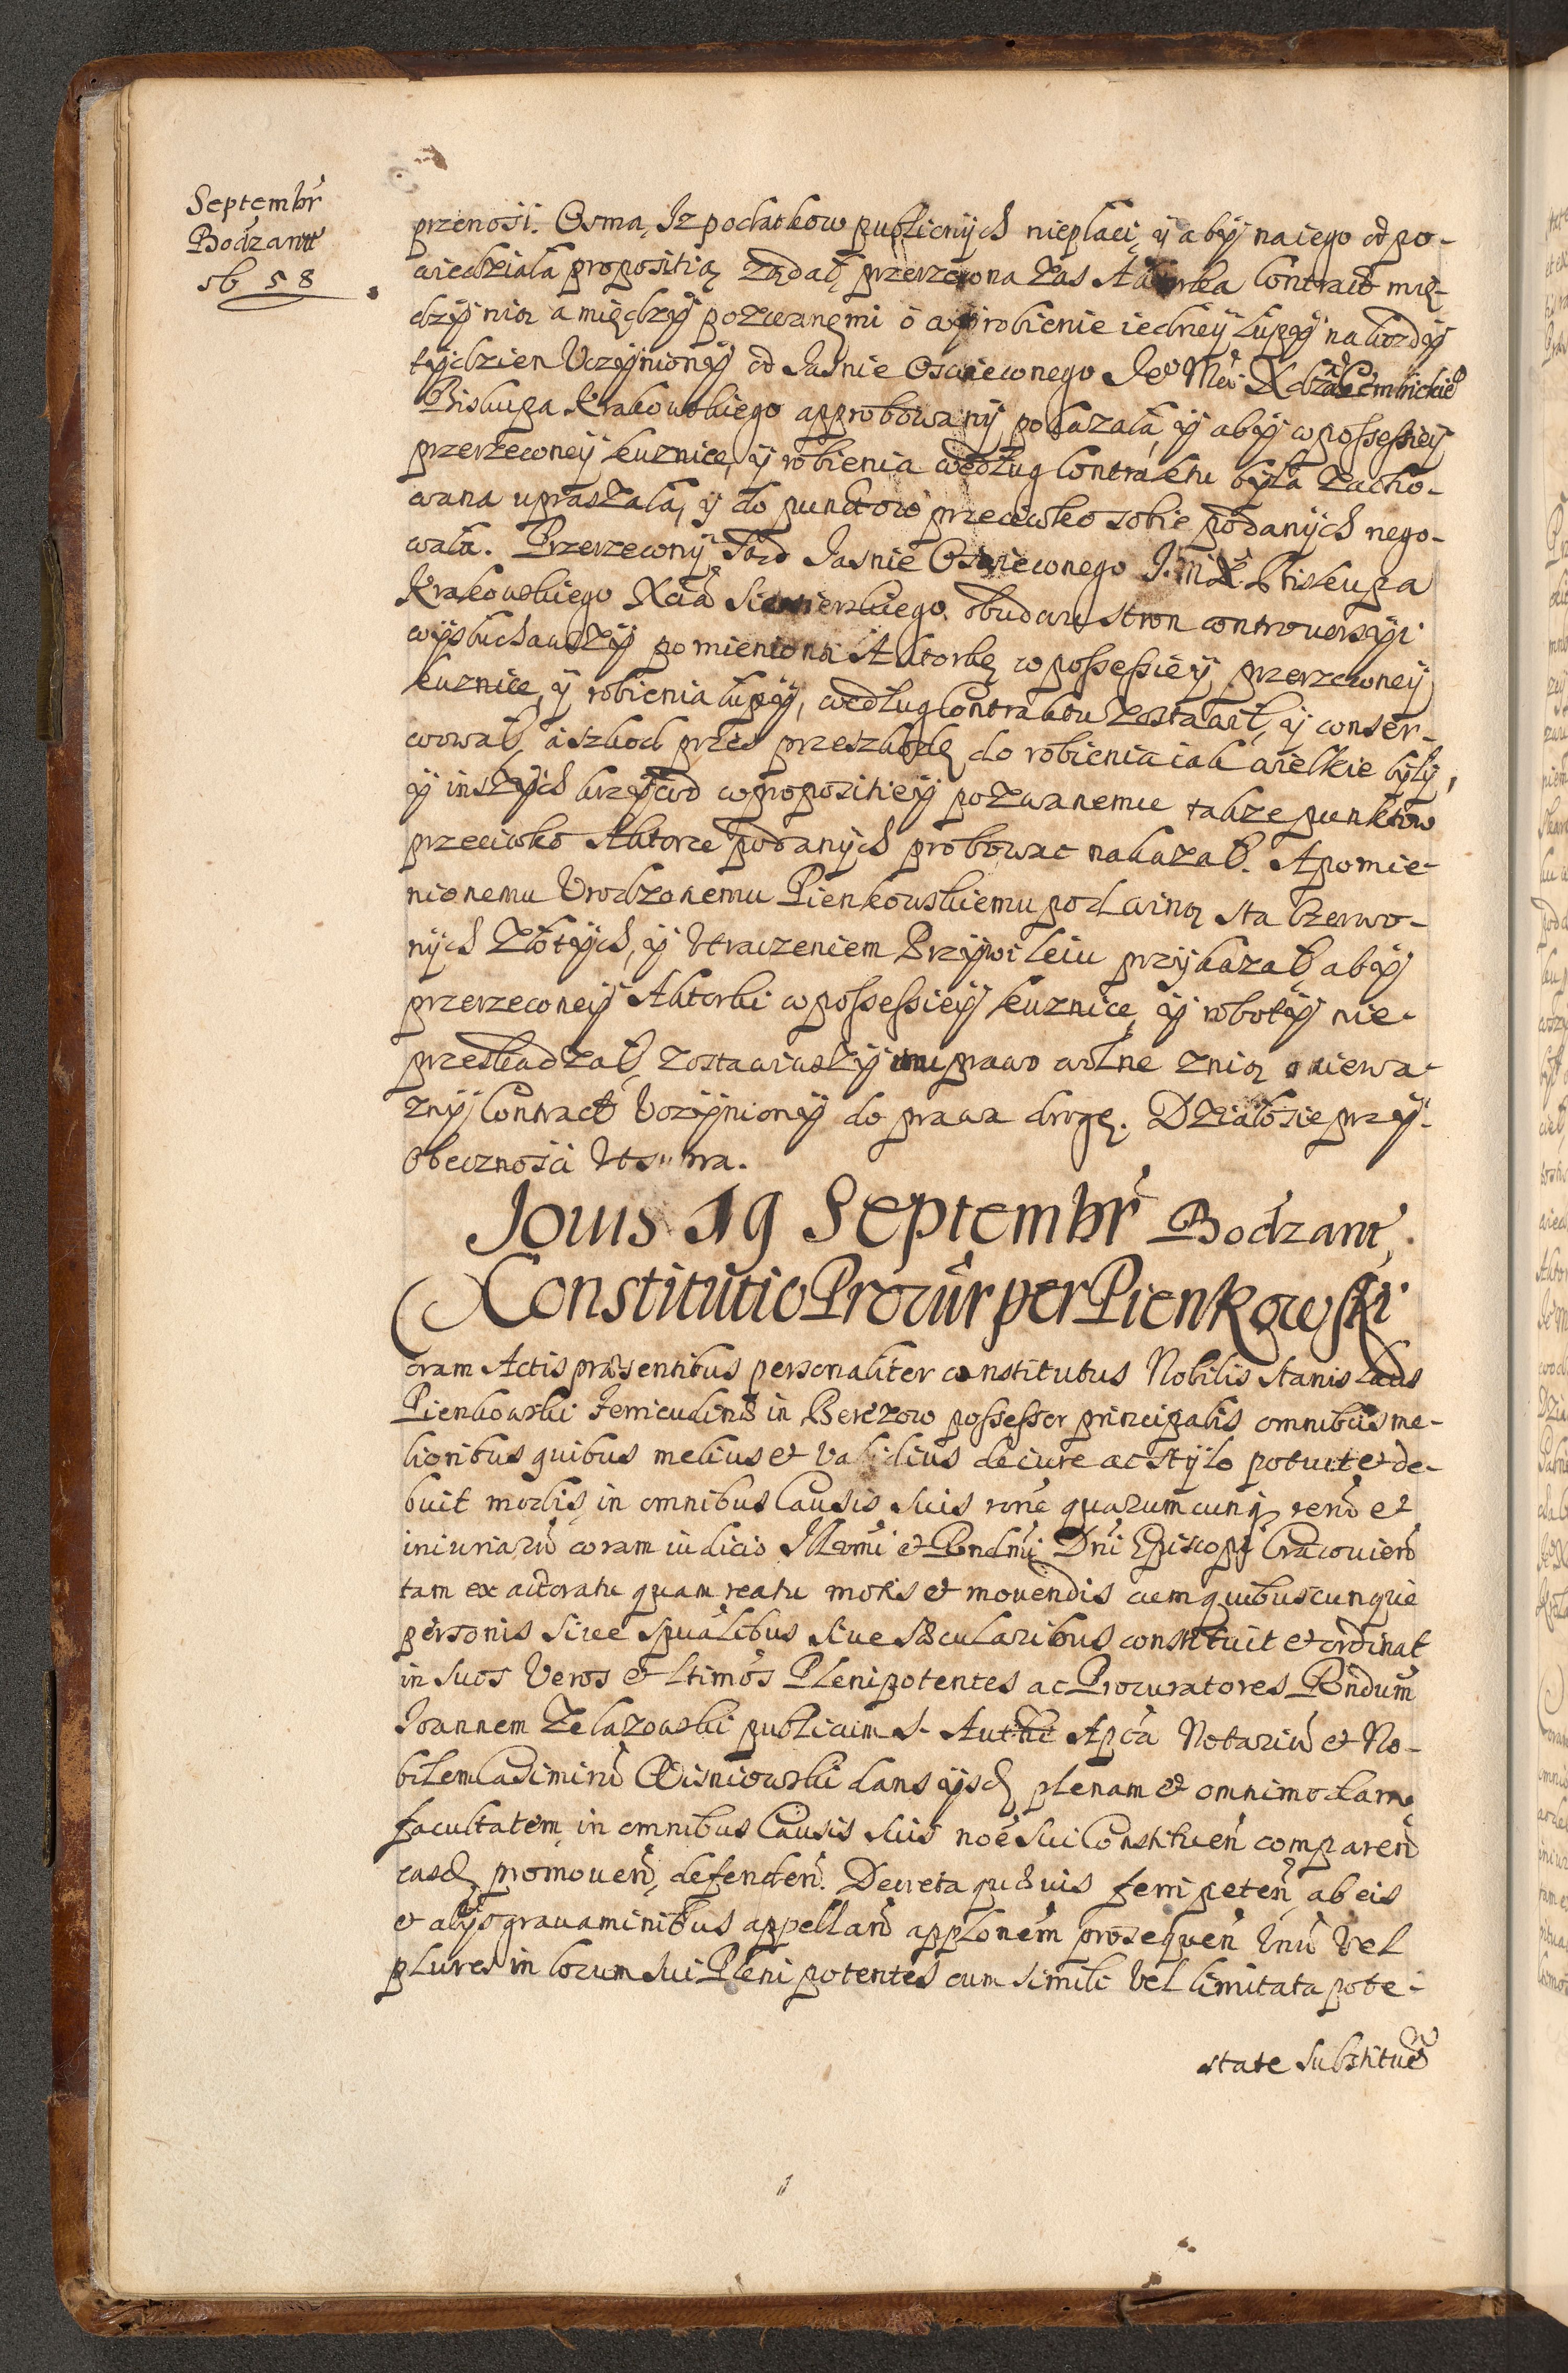 Septembr
Bodzant
sb 58
przenosi. Osma, Iz podatkow publicnÿch nieplaci, ÿ abÿ na iego odpo-
wiedziała propositią żądał, przerzeczona zas Aktorka Contract mię-
dzÿ nią a międzÿ pozwanęmi o wÿrobienie iednieÿ łupÿ na kożdÿ
tÿdzien Uczÿnionÿ od Jasnie Oswieconego Je° Mći Xdza Gembickie°
Biskupa Krakowskiego approbowanÿ pokazała, ÿ abÿ w possessieÿ
przerzeconeÿ kuznice, ÿ robienia według Contraktu bÿła zacho-
wana upraszała, ÿ do punctow przeciwko sobie podanÿch nego-
wała. Przerzeconÿ Sąd Jasnie Oswieconego J. M. X. Biskupa
Krakowskiego Xcia Siewierskiego obudwu stron controuersÿi
wÿsłuchawszÿ pomienioną Aktorkę w possessieÿ przerzeconeÿ
kuznice, ÿ robienia łupÿ, według Contraktu zostawił, ÿ conser-
wował, a szkod przes przeszkodę do robienia iak wielkie bÿłÿ,
ÿ inszÿch krzÿwd w propositieÿ pozwanemu także punktow
przeciwko Aktorce podanÿch probowac nakazał. A pomie-
nionemu Urodzonemu Pienkowskiemu pod winą sta Czerwo-
nÿch Złotÿch, ÿ Utraczeniem Przÿwileiu przÿkazał, abÿ
przerzeconeÿ Aktorki w possessieÿ kuznice, ÿ robotÿ nie-
przeskadzał, zostawiwszÿ mu prawo wolne znią o niewa-
znÿ Contract Uczÿnionÿ do prawa drogę. Działosie przÿ
Obecznosci Ut supra.
Jouis 19 Septembr Bodzant.
Constitutio Procur per Pienkowski
oram Actis præsentibus personaliter constitutus Nobilis Stanislaus
Pienkowski Ferricudinæ in Berezow possessor principalis omnibus me-
lioribus quibus melius et validius de iure ac stÿlo potuit et de-
buit modis, in omnibus Causis suis rõne quarumcunq rerũ et
iniuriarũ coram iudicio Illrmi et Rndmi Dni Episcopi Cracouien
tam ex actoratu quam reatu motis et mouendis cum quibuscunque
personis siue spũalibus siue sæcularibus constituit et ordinat
in suos Veros et ltimos Plenipotentes ac Procuratores Rndum
Joannem Zelazowski publicum S. Autht Aplca Notariũ et No-
bilem Casimirũ Wisniowski dans ÿsd plenam et omnimodam
facultatem in omnibus Causis suis noe sui Constituen comparen
easd promouen, defenden. Decreta quævis ferri peten, ab eis
et alÿs grauaminibus appellan applonem prosequen Unũ Vel
plures in locum sui Plenipotentes cum simili Vel limitata pote-
state substituen